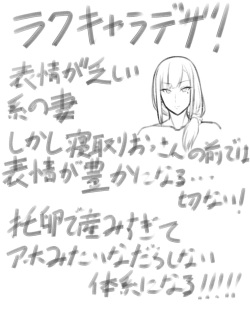 ラクキャラデザ!
表情が乏しい
系の妻
しかし寝取りおじさんの前では
表情が豊かになる…
切ない!
托卵で産みすぎて
アホみたいなだらしない
体系になる!!!!!